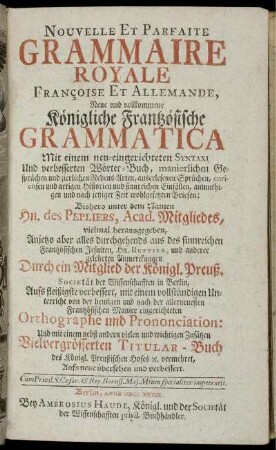 NOUVELLE ET PARFAITE
GRAMMAIRE
ROYALE
FRANÇOISE ET ALLEMANDE,
Neue und vollkommene
Königliche Frantzösische
GRAMMATICA
Mit einem neu-eingerichteten SYNTAXI
Und verbesserten Wörter-Buch, manierlichen Ge-
sprächen und zierlichen Redens-Arten, auserlesenen Sprüchen, curi-
eusen und artigen Historien und sinnreichen Einfällen, anmuthi-
gen und nach jetziger Zeit wohlgesetzten Briefen:
Bishero unter dem Namen
Hn. des PEPLIERS, Acad. Mitgliedes,
vielmal herausgegeben,
Anjetzo aber alles durchgehends aus des sinnreichen
Frantzösischen Jesuiten, Hn. BUFFIER, und anderer
gelehrten Anmerckungen
Durch ein Mitglied der Königl. Preuß.
SOCIETÄT der Wissenschafften in Berlin,
Aufs fleißigste verbessert, mit einem vollständigen Un-
terricht von der heutigen und nach der allerneuesten
Frantzösischen Manier eingerichteten
Orthographe und Prononciation:
Und mit einem nebst andern vielen und wichtigen Zusätzen
Vielvergrösserten TITULAR-Buch
des Königl. Preußischen Hofes ꝛc. vermehret,
Aufs neue übersehen und verbessert.
Cum Privil. S. Cæsar. & Reg. Boruss. Maj. Atium specialiter impetratis.
Berlin,
Bey AMBROSIUS HAUDE, Königl. und der Societät
der Wissenschafften privil. Buchhändler.